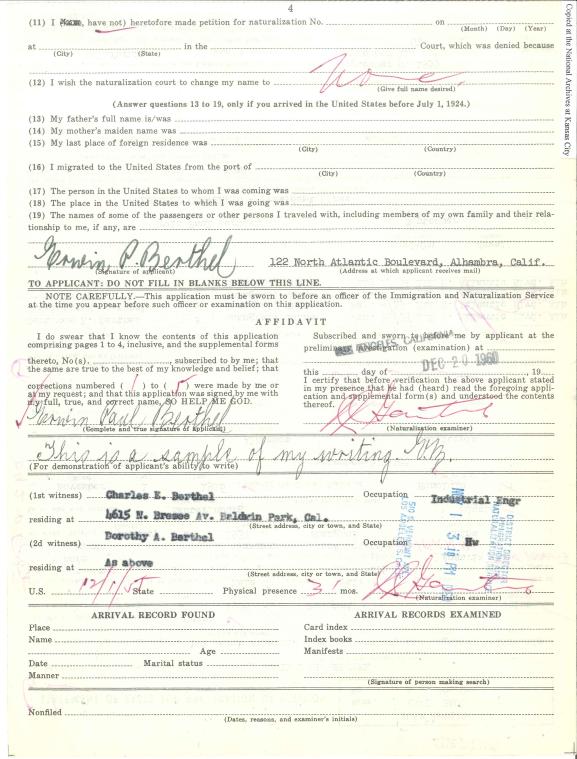 4
Copied at the National Archives at Kansas City
(11) I have, have not) heretofore made petition for naturalization No. on
(Month) (Day) (Year)
at in the Court, which was denied because
(City) (State)
(12) I wish the naturalization court to change my name to None
(Give full name desired)
(Answer questions 13 to 19, only if you arrived in the United States before July 1, 1924.)
(13) My father's full name is/was
(14) My mother's maiden name was
(15) My last place of foreign residence was
(City) (Country)
(16) I migrated to the United States from the port of
(City) (Country)
(17) The person in the United States to whom I was coming was
(18) The place in the United States to which I was going was
(19) The names of some of the passengers or other persons I traveled with, including members of my own family and their rela-
tionship to me, if any, are
Erwin P. Berthel 122 North Atlantic Boulevard, Alhambra, Calif.
(Signature of applicant) (Address at which applicant receives mail)
TO APPLICANT: DO NOT FILL IN BLANKS BELOW THIS LINE.
NOTE CAREFULLY.—This application must be sworn to before an officer of the Immigration and Naturalization Service
at the time you appear before such officer for examination on this application.
AFFIDAVIT
I do swear that I know the contents of this application
comprising pages 1 to 4, inclusive, and the supplemental forms
thereto, No(s). , subscribed to by me; that
the same are true to the best of my knowledge and belief; that
corrections numbered ( 1 ) to ( 5 ) were made by me or
at my request; and that this application was signed by me with
my full, true, and correct name, SO HELP ME GOD.
Erwin Paul Berthel
(Complete and true signature of applicant)
Subscribed and sworn to before me by applicant at the
preliminary investigation (examination) at
LOS ANGELES, CALIFORNIA
this day of , 19
DEC 20 1960
I certify that before verification the above applicant stated
in my presence that he had (heard) read the foregoing appli-
cation and supplemental form(s) and understood the contents
thereof.
(Naturalization examiner)
This is a sample of my writing.
(For demonstration of applicant's ability to write)
(1st witness) Charles E. Berthel Occupation Industrial Engr
residing at 4615 N. Bresee Av. Baldwin Park, Cal.
(Street address, city or town, and State)
(2d witness) Dorothy A. Berthel Occupation Hw
residing at As above
(Street address, city or town, and State)
U.S. State Physical presence 3 mos.
(Naturalization examiner)
ARRIVAL RECORD FOUND
Place
Name
Age
Date Marital status
Manner
ARRIVAL RECORDS EXAMINED
Card index
Index books
Manifests
(Signature of person making search)
Nonfiled
(Dates, reasons, and examiner's initials)